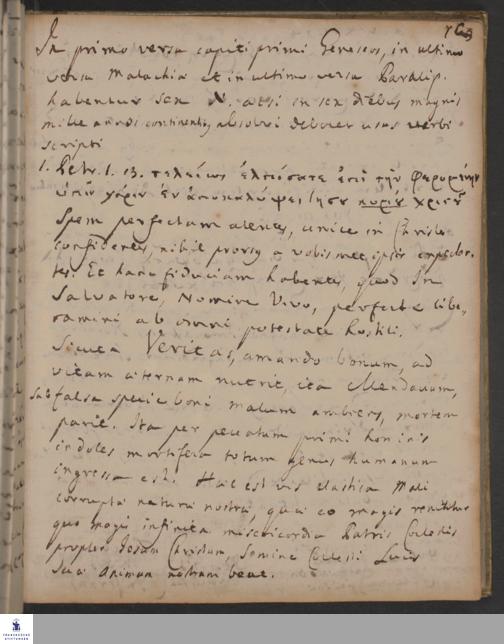 In primo versu capitis primi Geneseos, in ultimo
versu Malachiæ et in ultimo versu Paralip.
habentur sex א. acsi in sex diebus magnis
mille annos continentibus, absolvi deberet usus verbi
scripti
1. Petr. 1. 13. τελείως ἐλπίσατε ἐπὶ τὴν φερομένην
ὑμῖν χάριν ἐν ἀποκαλύψει Ἰησοῦ χριστοῦ
Spem perfectam alentes, unice in Christo
confidentes, nihil prorsus a vobismet ipsis expectan-
tes. Et hanc fiduciam habentes, quod In
Salvatore, Nomine Vivo, perfecte libe-
ramini ab omni potestate hostili.
Sicut Veritas, amando bonum, ad
vitam æternam nutrit, ita Mendacium,
sub falsa specie boni malum ambiens, mortem
parit. Ita per peccatum primi hominis
indoles mortifera totum genus humanum
ingressa est. Hæc est vis elastica Mali
corruptæ naturæ nostræ, quæ eo magis renititur
quo magis infinita misericordia Patris Coelestis
propter Jesum Christum, Semine Coelesti Lucis
suæ animam nostram beat.
FRANCKESCHE
STIFTUNGEN